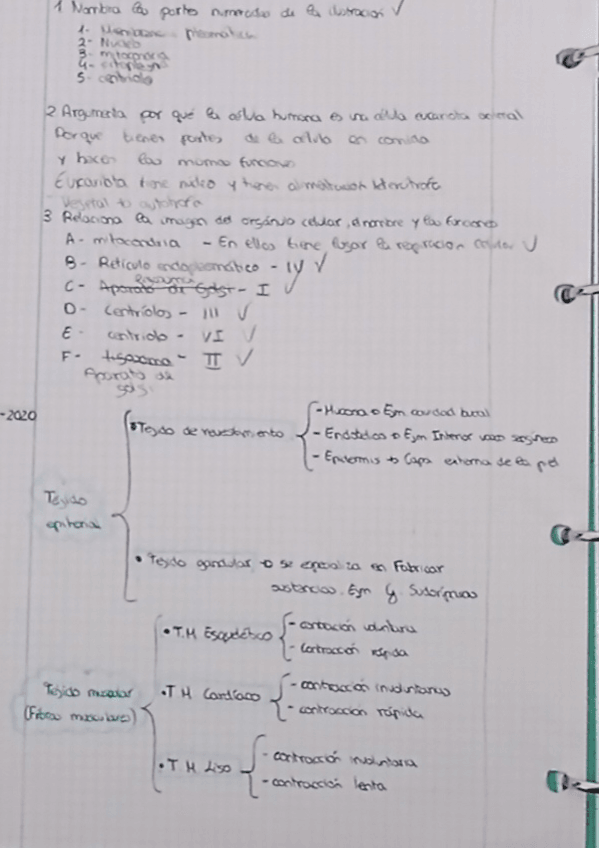 1 Nombra las partes numeradas de la ilustración √
1- Membrana plasmática
2- Nucleo
3- mitocondria
4- citoplasma
5- centriolo
2 Argumenta por qué la célula humana es una célula eucariota animal
Porque tienen partes de la célula en común
y hacen las mismas funciones
Eucariota tiene nucleo y tienen alimentación heterótrofa
Vegetal → autótrofa
3 Relaciona la imagen del orgánulo celular, el nombre y las funciones
A- mitocondria - En ellas tiene lugar la respiración celular √
B- Retículo endoplasmático - IV √
C- Aparato de Golgi - I √
D- Centríolos - III √
E- centriolo - VI √
F- lisosoma - II √
Aparato de
Golgi
-2020
Tejido
epitelial
• Tejido de revestimiento
- Mucosa → Ejm cavidad bucal
- Endotelios → Ejm Interior vasos sanguíneos
- Epidermis → Capa externa de la piel
• Tejido glandular → se especializa en Fabricar
sustancias. Ejm G. Sudoríparas
Tejido muscular
(Fibras musculares)
• T.M Esquelético
- contracción voluntaria
- Contracción rápida
• T M Cardíaco
- contracción involuntaria
- contracción rápida
• T M Liso
- contracción involuntaria
- contracción lenta